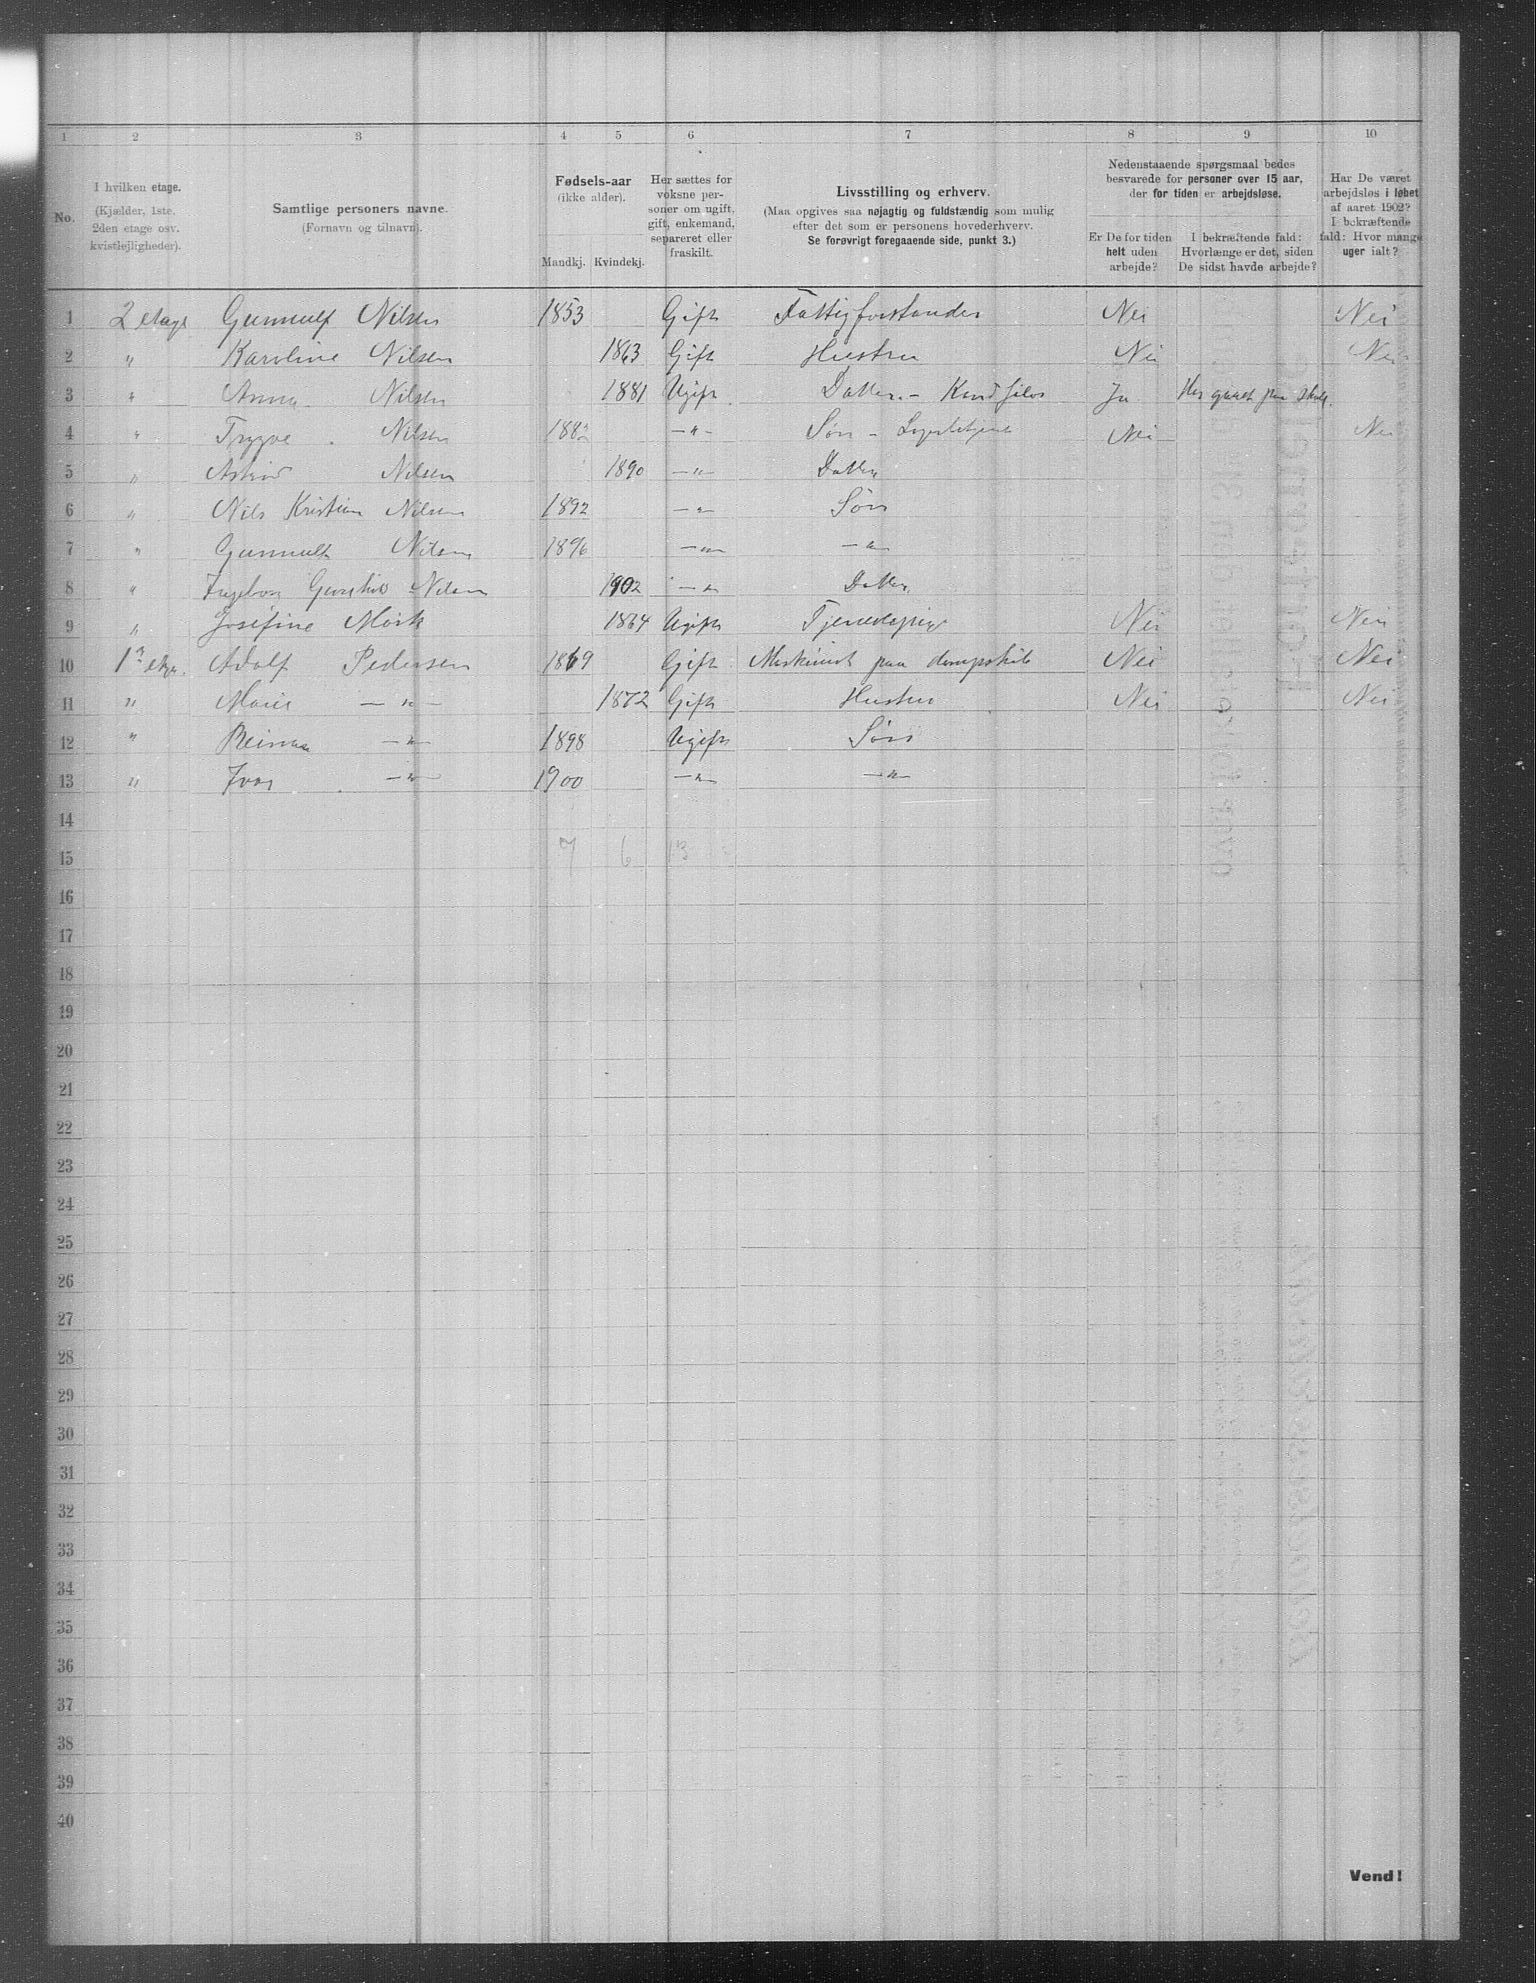 1 2 3 4 5 6 7 8 9 10
No.
I hvilken etage.
(Kjælder, 1ste,
2den etage osv.
kvistlejligheder).
Samtlige personers navne.
(Fornavn og tilnavn).
Fødsels-aar
(ikke alder).
Mandkj. Kvindekj.
Her sættes for
voksne per-
soner om ugift,
gift, enkemand,
separeret eller
fraskilt.
Livsstilling og erhverv.
(Maa opgives saa nøjagtig og fuldstændig som mulig
efter det som er personens hovederhverv.
Se forøvrigt foregaaende side, punkt 3.)
Nedenstaaende spørgsmaal bedes
besvarede for personer over 15 aar,
der for tiden er arbejdsløse.
Er De for tiden
helt uden
arbejde?
I bekræftende fald:
Hvorlænge er det, siden
De sidst havde arbejde?
Har De været
arbejdsløs i løbet
af aaret 1902?
I bekræftende
fald: Hvor mange
uger ialt?
1 2 etage Gunnulf Nilsen 1853 Gift Fattigforstander Nei Nei
2 " Karoline Nilsen 1863 Gift Hustru Nei Nei
3 " Anna Nilsen 1881 Ugift Datter - Ja Har gaaet paa skole.
4 " Trygve Nilsen 1882 -"- Søn - Nei Nei
5 " Astrid Nilsen 1890 -"- Datter
6 " Nils Kristian Nilsen 1892 -"- Søn
7 " Gunnulf Nilsen 1896 -"- -"-
8 " Ingeborg Nilsen 1902 -"- Datter
9 " Josefine Mörk 1864 Ugift Tjenestepige Nei Nei
10 1ste etge. Adolf Pedersen 1869 Gift Maskinist paa dampskib Nei Nei
11 " Marie -"- 1872 Gift Hustru Nei Nei
12 " -"- 1898 Ugift Søn
13 " Ivar -"- 1900 -"- -"-
14
15 7 6 13
16
17
18
19
20
21
22
23
24
25
26
27
28
29
30
31
32
33
34
35
36
37
38
39
40
Vend!